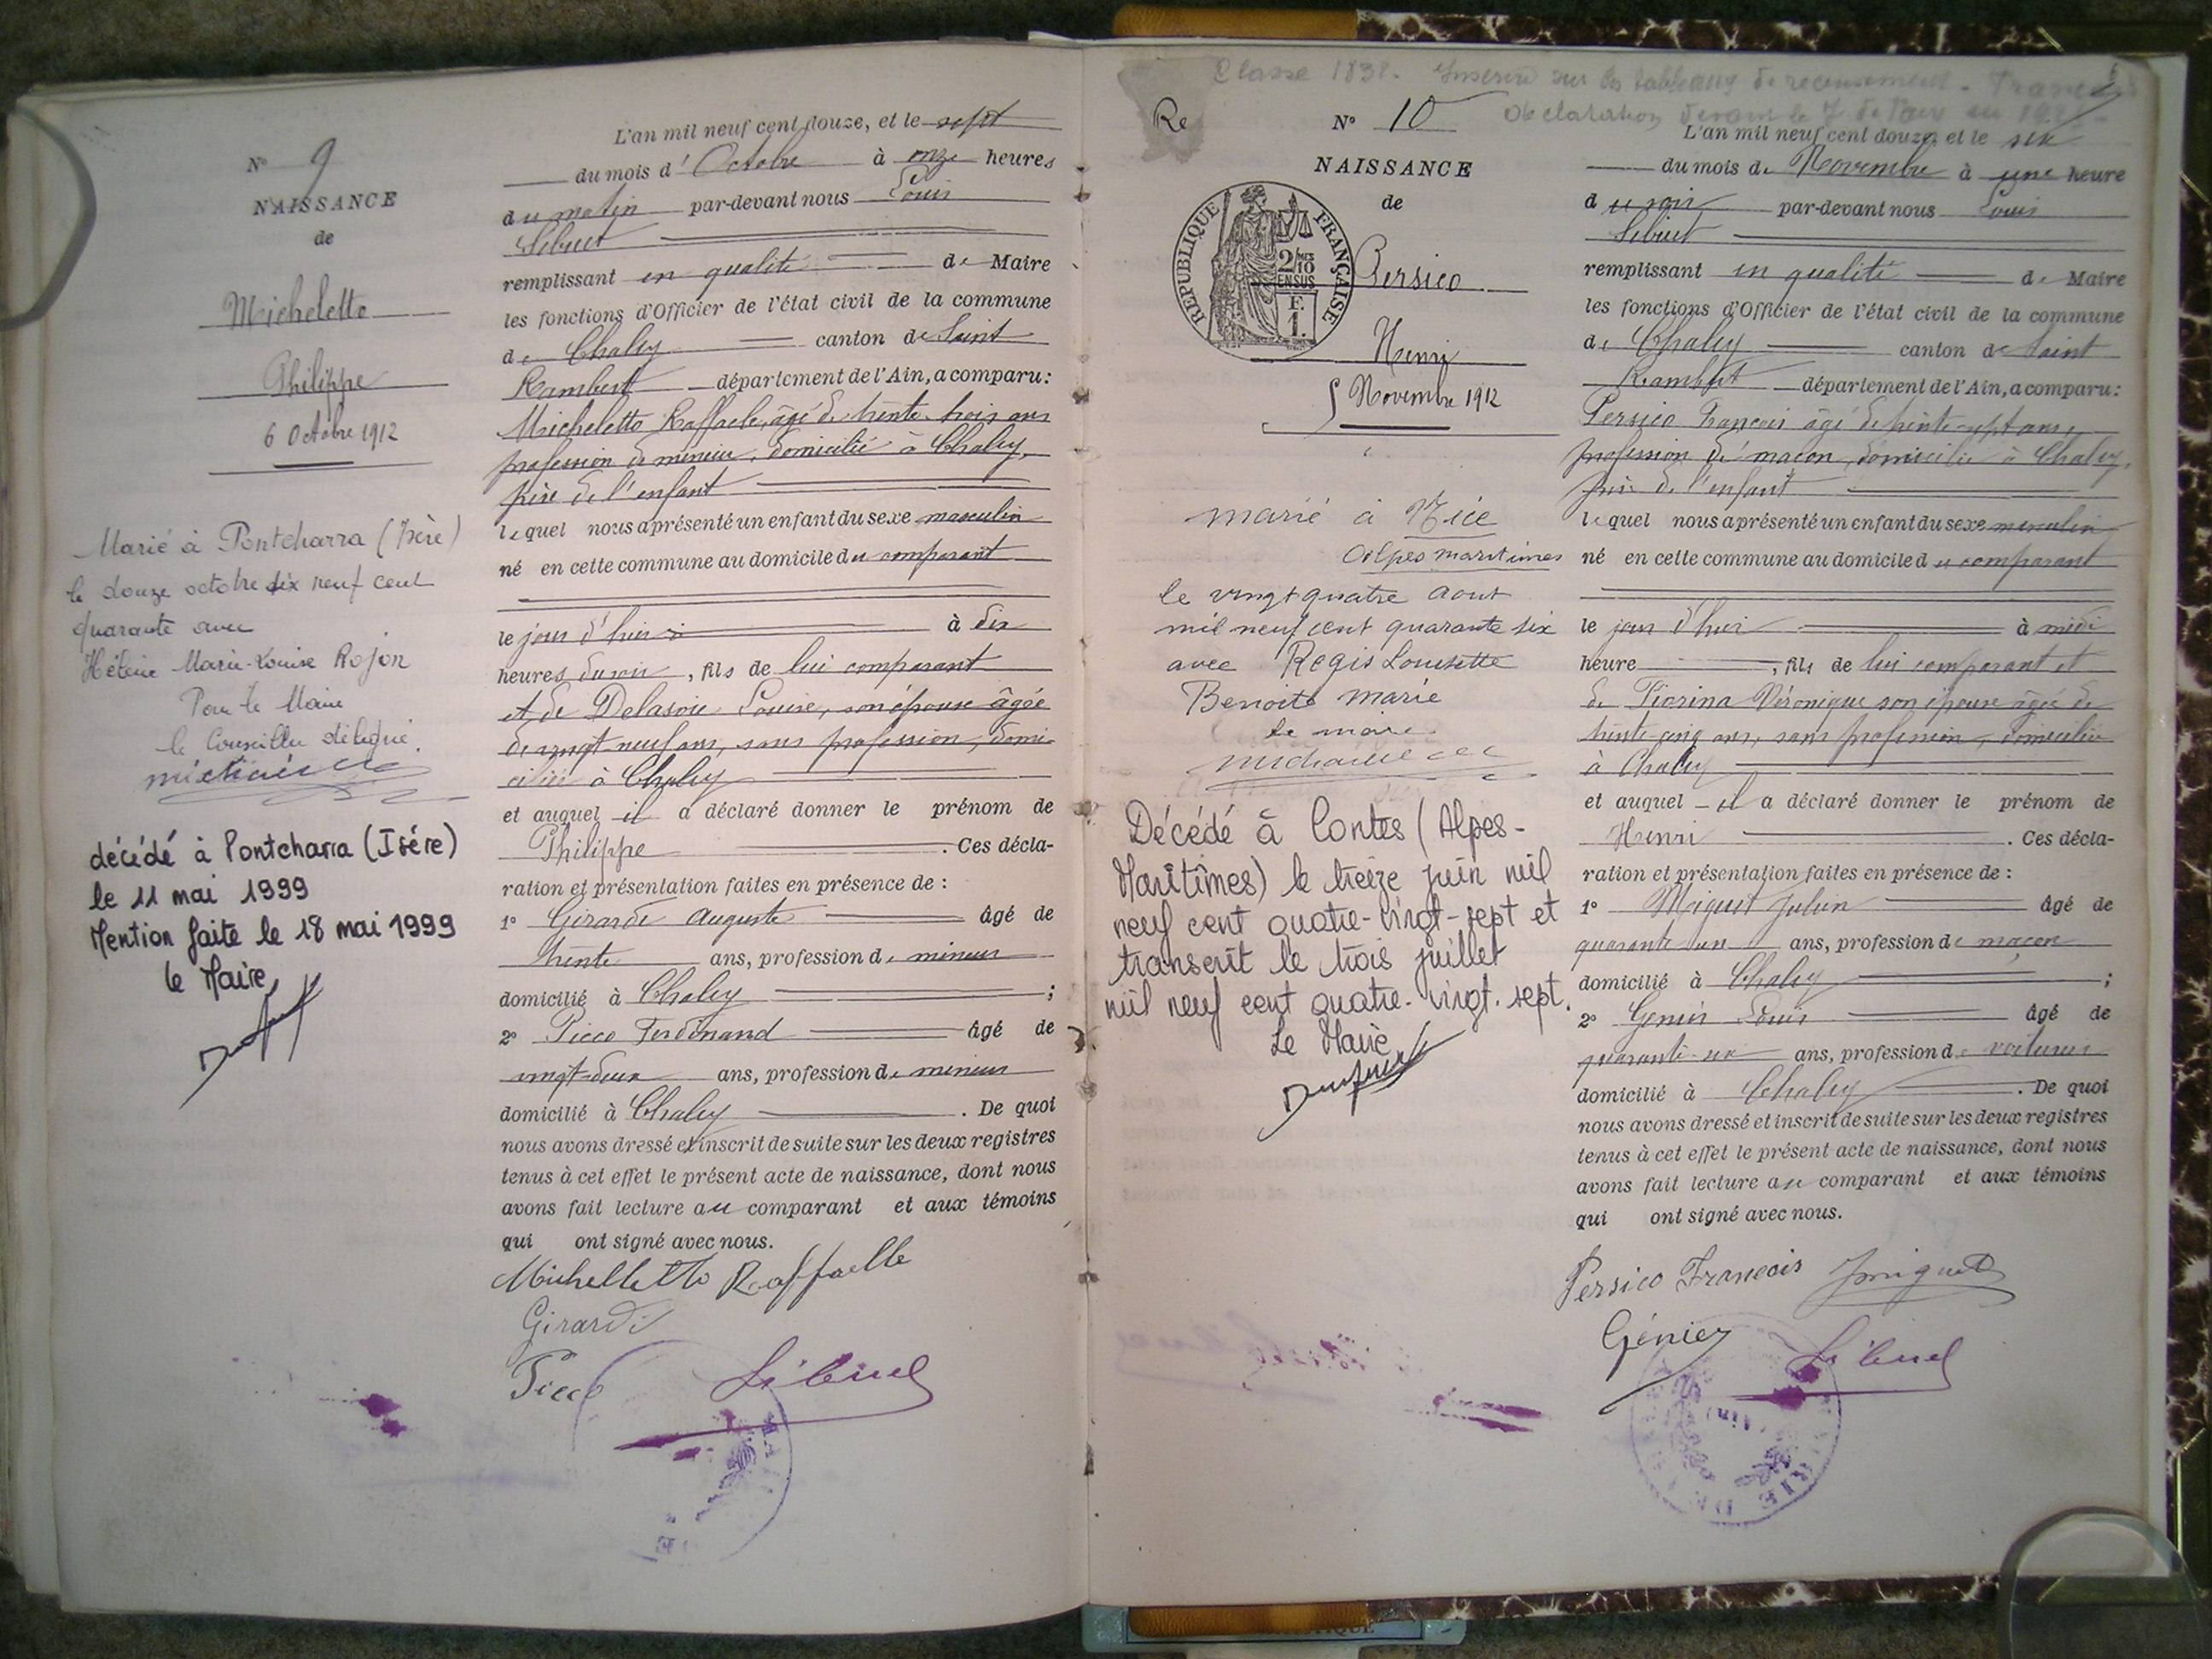 N° 9
NAISSANCE
de
Micheletto
Philippe
6 Octobre 1912
Marié à Pontcharra (Isère)
le douze octobre dix neuf cent
quarante avec
Hélène Marie-Louise Rojon
Pour le Maire
le Conseiller délégué.
décédé à Pontcharra (Isére)
le 11 mai 1999
Mention faite le 18 mai 1999
le Maire,
L'an mil neuf cent douze, et le sept
du mois d'Octobre à onze heures
du matin par-devant nous Louis
remplissant en qualité de Maire
les fonctions d'Officier de l'état civil de la commune
de Chaley canton de Saint
Rambert département de l'Ain, a comparu:
Micheletto Raffaele, âgé de trente-trois ans
profession de mineur, domicilié à Chaley,
père de l'enfant
lequel nous a présenté un enfant du sexe masculin
né en cette commune au domicile du comparant
le jour d'hier à dix
heures du soir, fils de lui comparant
et de Delasoie Louise, son épouse âgée
de vingt-neuf ans, sans profession, domi-
ciliée à Chaley
et auquel il a déclaré donner le prénom de
Philippe. Ces décla-
ration et présentation faites en présence de :
1° Girardi Auguste âgé de
trente ans, profession de mineur
domicilié à Chaley ;
2° Picco Ferdinand âgé de
vingt-deux ans, profession de mineur
domicilié à Chaley. De quoi
nous avons dressé et inscrit de suite sur les deux registres
tenus à cet effet le présent acte de naissance, dont nous
avons fait lecture au comparant et aux témoins
qui ont signé avec nous.
Michelletto Raffaelle
Girardi
Picco
Classe 1932. Inscrit sur les tableaux de recensement.
Déclaration devant le J. de Paix en
Re
N° 10
NAISSANCE
de
REPUBLIQUE FRANÇAISE
2 MES
10
EN SUS
F.
1.
Persico
Henri
5 Novembre 1912
marié à Nice
Alpes maritimes
le vingt quatre aout
mil neuf cent quarante six
avec Regis Louisette
Benoite Marie
le maire
Décédé à Contes (Alpes-
Maritimes) le treize juin mil
neuf cent quatre-vingt-sept et
transcrit le trois juillet
mil neuf cent quatre-vingt-sept.
Le Maire
L'an mil neuf cent douze, et le six
du mois de Novembre à une heure
du soir par-devant nous Louis
remplissant en qualité de Maire
les fonctions d'Officier de l'état civil de la commune
de Chaley canton de Saint
Rambert département de l'Ain, a comparu:
Persico François âgé de trente-sept ans,
profession de maçon, domicilié à Chaley,
père de l'enfant
lequel nous a présenté un enfant du sexe masculin
né en cette commune au domicile du comparant
le jour d'hier à midi
heure, fils de lui comparant et
de Fiorina Véronique son épouse âgée de
trente-cinq ans, sans profession, domiciliée
à Chaley
et auquel il a déclaré donner le prénom de
Henri. Ces décla-
ration et présentation faites en présence de :
1° Miguet Julien âgé de
quarante un ans, profession de maçon
domicilié à Chaley ;
2° Genier Louis âgé de
quarante-un ans, profession de voiturier
domicilié à Chaley. De quoi
nous avons dressé et inscrit de suite sur les deux registres
tenus à cet effet le présent acte de naissance, dont nous
avons fait lecture au comparant et aux témoins
qui ont signé avec nous.
Persico François Jmiguet
Génier